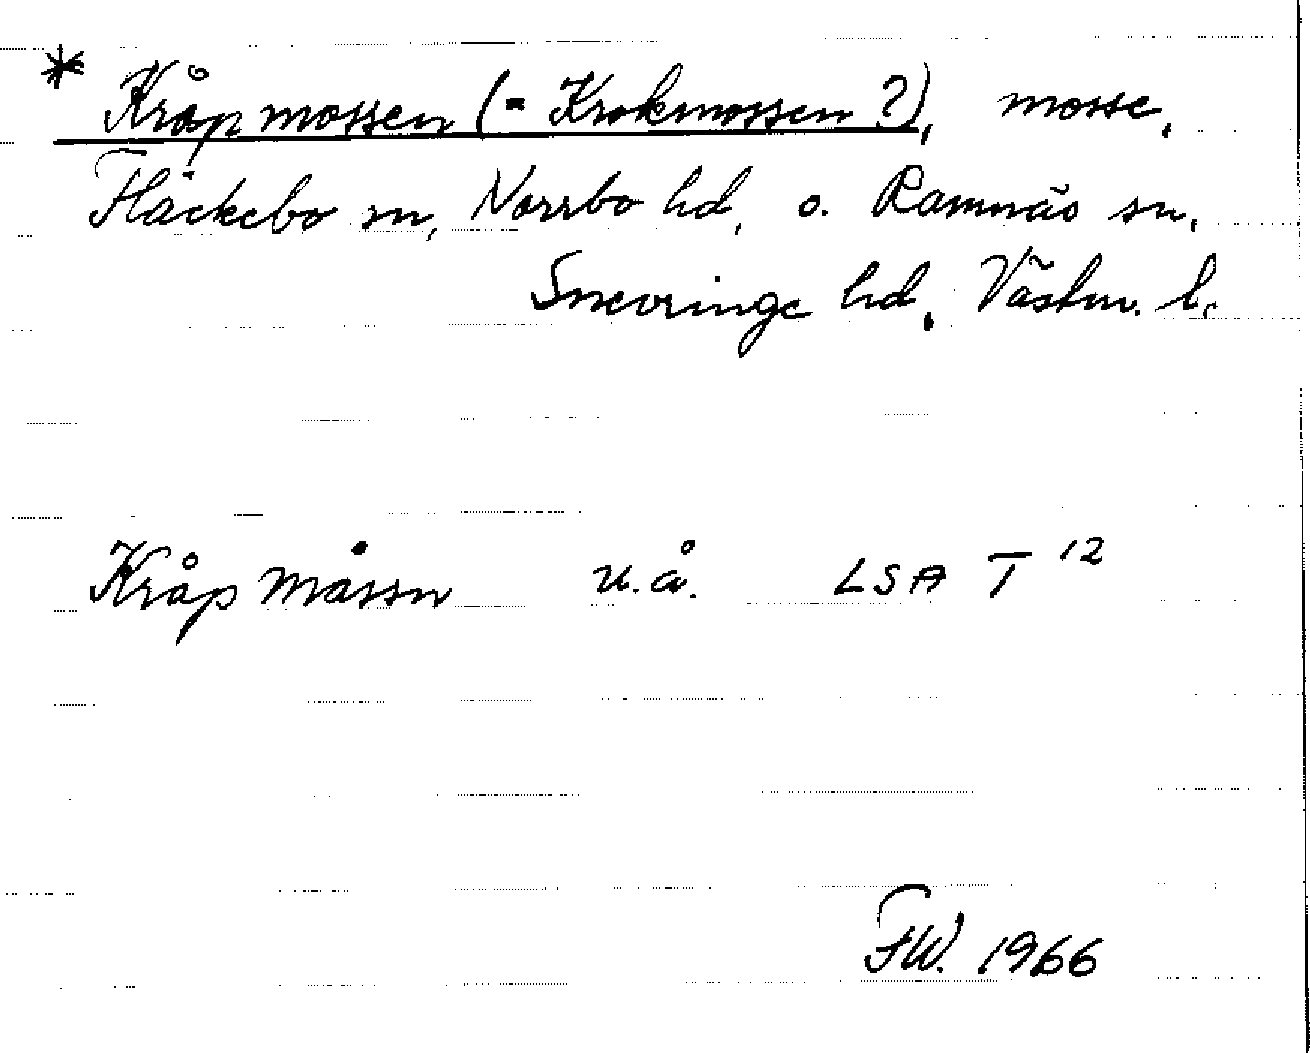 * Kråpmossen (= Krokmossen?), mosse,
Fläckebo sn, Norrbo hd, o. Ramnäs sn,
Snevringe hd, Västm. l.
Kråp Måssn u.å. LSA T 12
FW. 1966